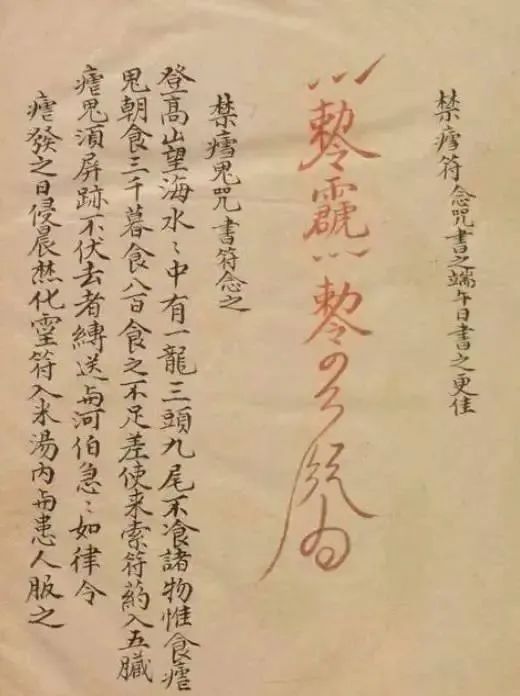 禁瘧符念咒書之端午日書之更佳
敕令
敕令
禁瘧鬼咒書符念之
登髙山望海水〻中有一龍三頭九尾不飡諸物惟食瘧
鬼朝食三千暮食八百食之不足差使来索符葯入五臟
瘧鬼須屏跡不伏去者縛送与河伯急〻如律令
瘧發之日侵晨焚化靈符入米湯内与患人服之